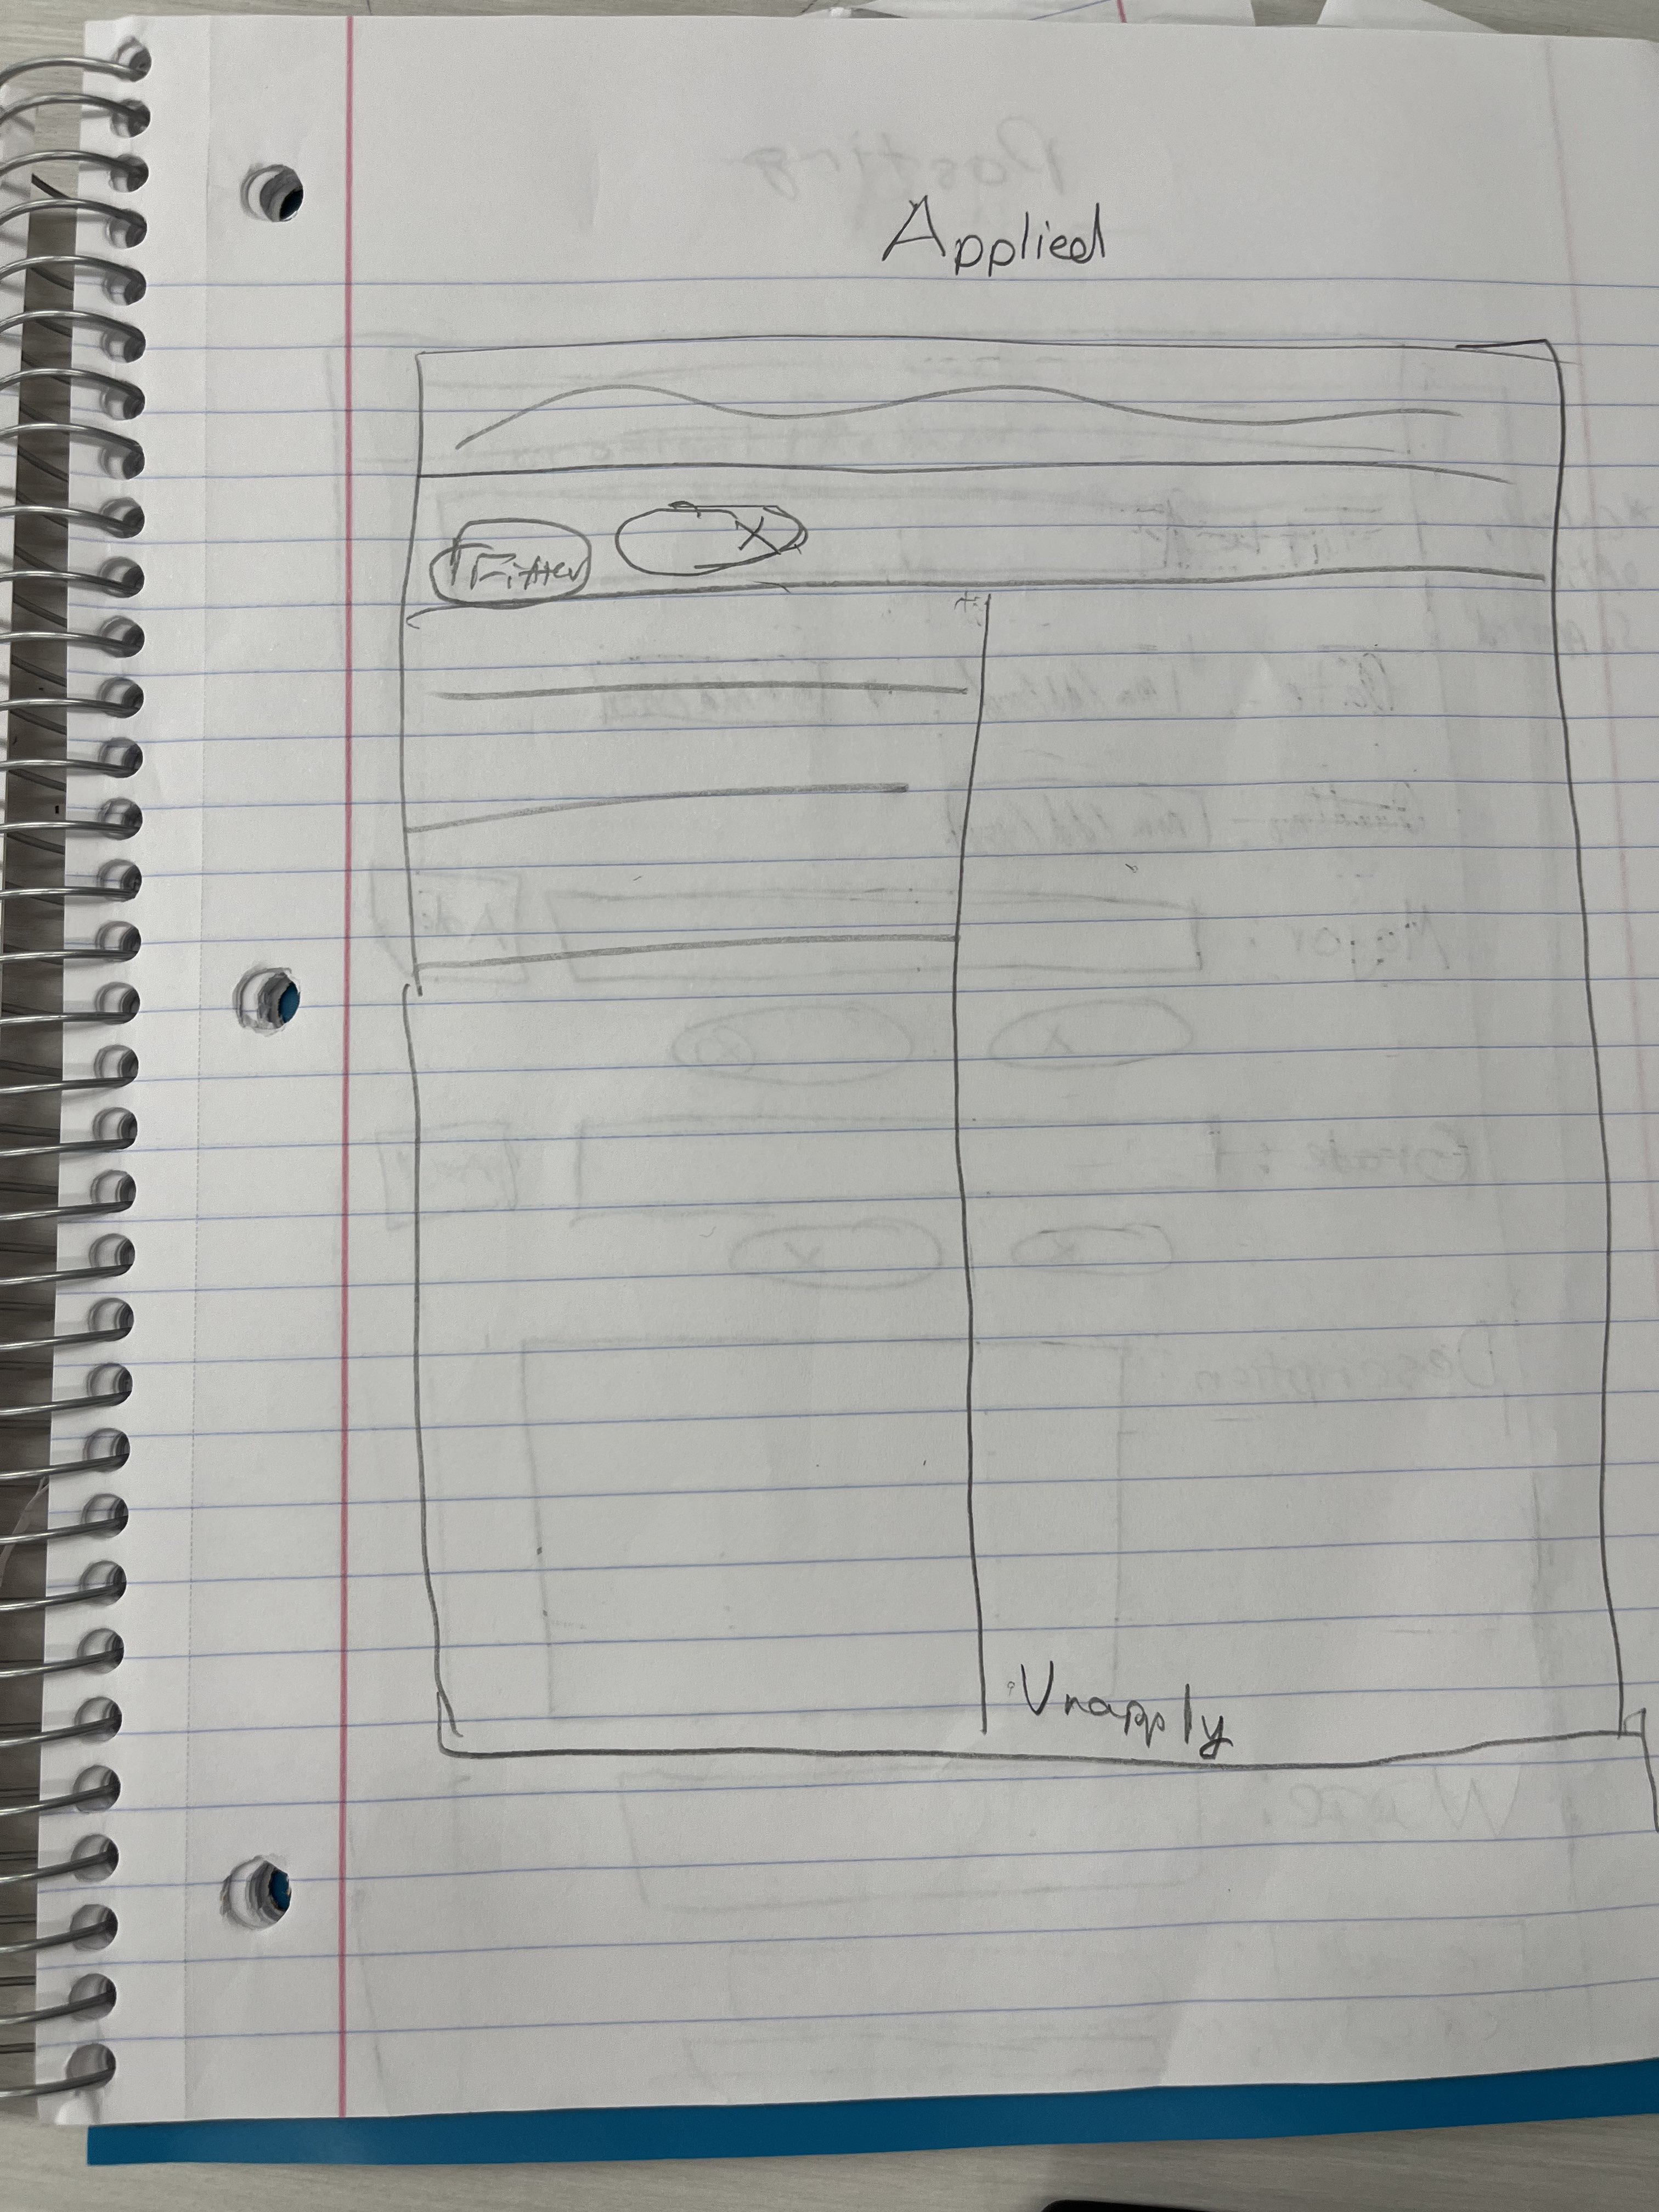 Applied
Filter X
Unapply